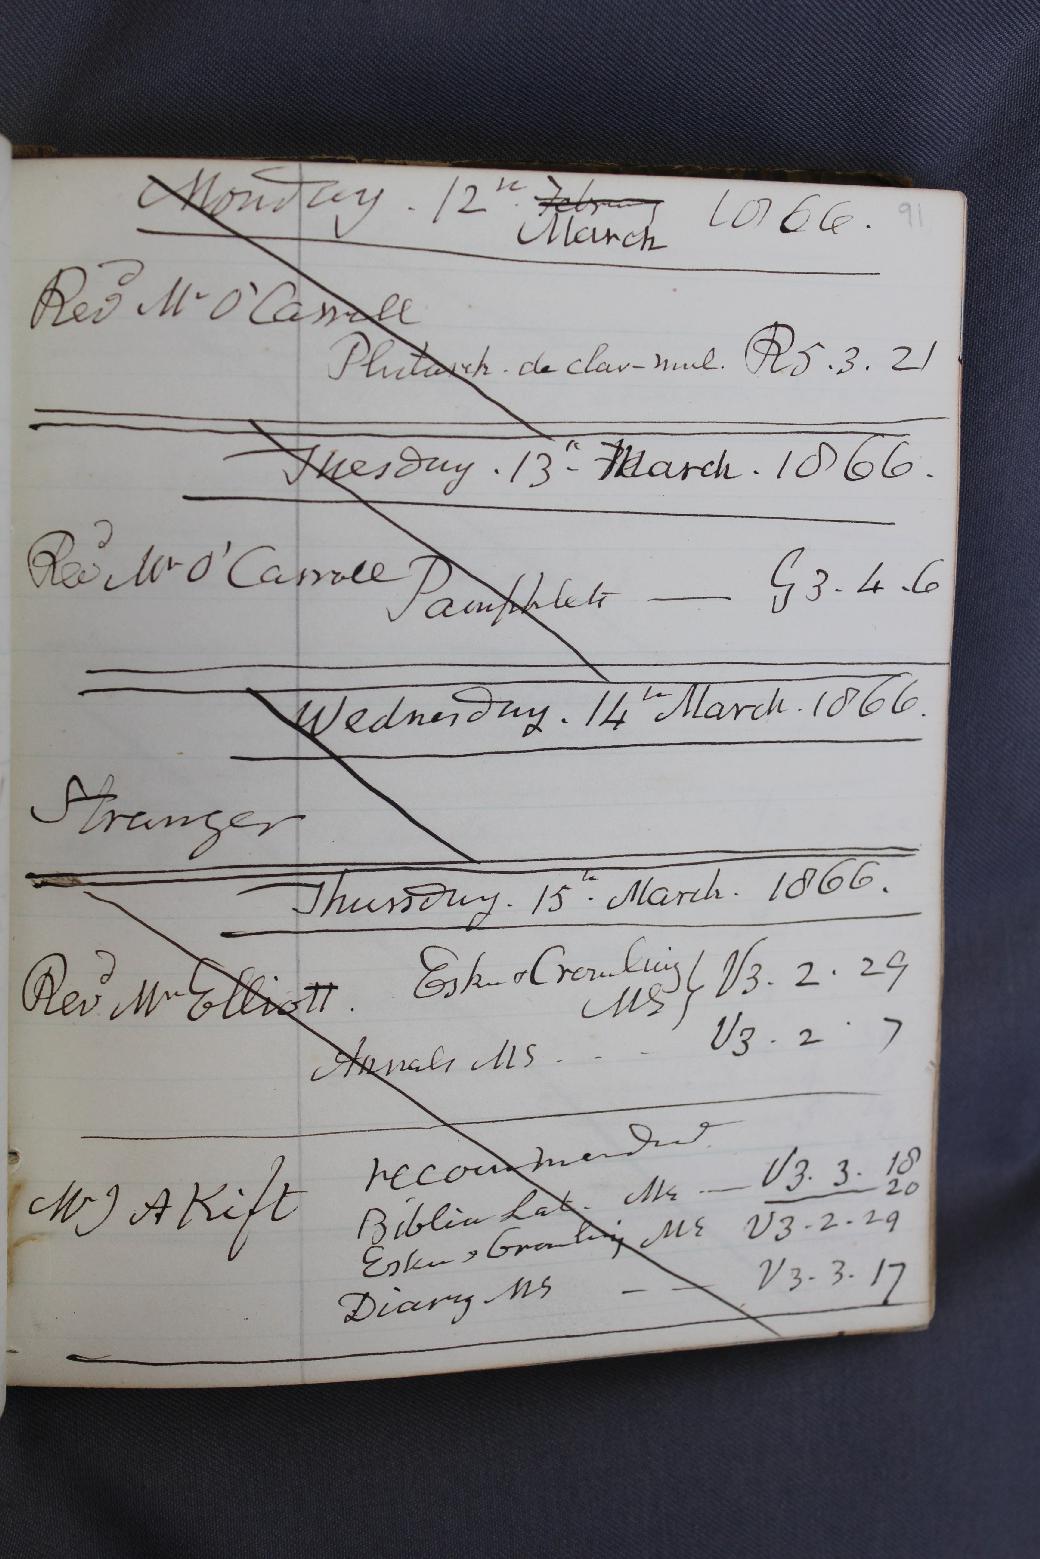 Monday. 12th. February March 1866. 91
Revd Mr O'Carroll
Plutarch. de clar-mul. R5.3.21
Tuesday. 13th. March. 1866.
Revd Mr O'Carroll Pamphlets — G3.4.6
Wednesday. 14th March. 1866.
Stranger
Thursday. 15th. March. 1866.
Revd Mr Elliott. Esku & Cromling V3.2.29
MS
Annals MS - - - V3.2.7
recommended
Mr J A Kift Biblia Lat. MS — V3.3.18
20
Esku & Cromling MS V3.2.29
Diary MS — — V3.3.17